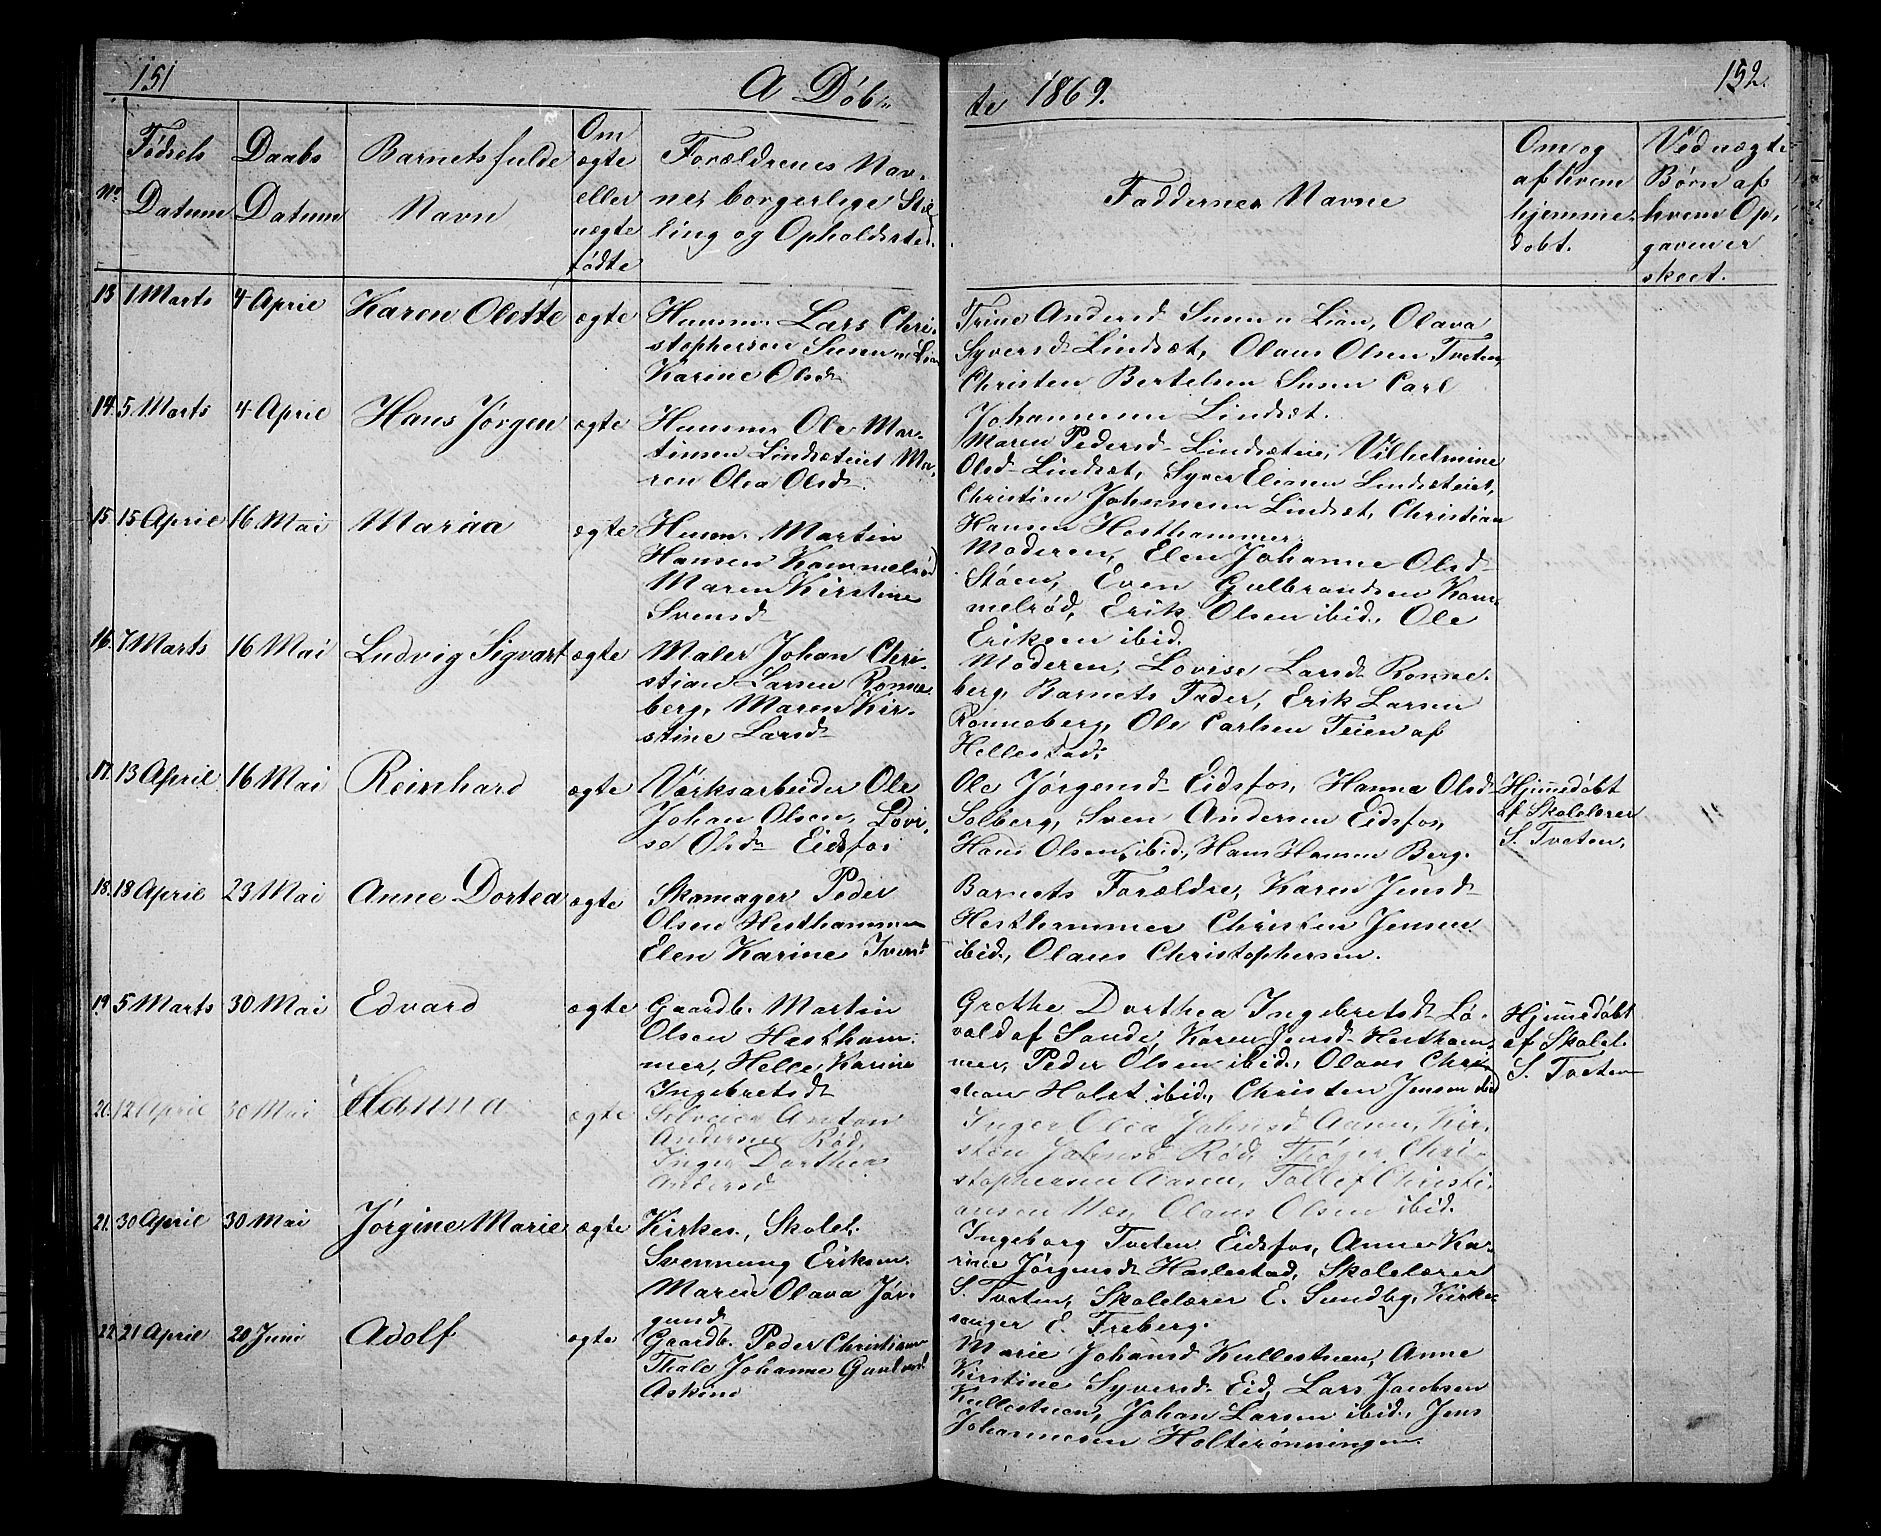 151
A Døb-
te 1869.
152.
No
Fødsels Datum
Daabs Datum
Barnets fulde Navn
Om ægte eller uægte fødte
Forældrenes Nav-
ne, borgerlige Stil-
ling og Opholdssted.
Faddernes Navne
Om og af hvem hjemme-
døbt.
Ved uægte Børn af hvem Op-
gaven er skeet.
13 1 Marts 4 April Karen Olette ægte
Husm. Lars Chri-
stophersen
Karine Olsd.
Trine Andersd. Lian, Olava
Syversd. Lindset, Olaus Olsen Tveten,
Christen Bertelsen Carl
Johannesen Lindset.
14. 5 Marts 4 April Hans Jørgen ægte
Husm. Ole Mar-
tinsen Lindseteiet Ma-
ren Olea Olsd.
Maren Pedersd. Lindseteie, Vilhelmine
Olsd. Lindset, Syver Eliasen Lindseteiet,
Christian Johannesen Lindset, Christian
Hansen Hesthammer.
15. 15 April 16 Mai Mariaa ægte
Husm. Martin
Hansen Kammelrød
Maren Kirstine
Svensd.
Moderen, Elen Johanne Olsd.
Støen, Even Gulbrandsen Kam-
melrød, Erik Olsen ibid., Ole
Eriksen ibid.
16. 7 Marts 16 Mai Ludvig Sigvart ægte
Maler Johan Chri-
stian Larsen Ronne-
berg, Maren Kir-
stine Larsd.
Moderen, Lovise Larsd. Ronne-
berg, Barnets Fader, Erik Larsen
Ronneberg, Ole Carlsen Teien af
Hillestad.
17. 13 April 16 Mai Reinhard ægte
Værksarbeider Ole
Johan Olsen, Lovi-
se Olsd. Eidsfos
Ole Jørgensd. Eidsfos, Hanna Olsd.
Solberg, Sven Andersen Eidsfos,
Hans Olsen, ibid., Hans Hansen Berg.
Hjemmedøbt
af Skolelærer
S. Tveten,
18. 18 April 23 Mai Anne Dortea ægte
Skomager Peder
Olsen Hesthammer
Elen Karine Iversd.
Barnets Forældre, Karen Jensd.
Hesthammer Christen Jensen
ibid., Olaus Christophersen.
19. 5 Marts 30 Mai Edvard ægte
Gaardb. Martin
Olsen Hestham-
mer, Helle Karine
Ingebretsd.
Grethe Dorthea Ingebretsd. Lø-
vald af Sande, Karen Jensd. Hestham-
mer, Peder Olsen ibid., Olaus Chri-
stian Holst ibid., Christen Jensen ibid
Hjemmedøbt
af Skolel.
S. Tveten
20. 12 April 30 Mai Hanna ægte
Selveier Anton
Andersen Rød,
Inger Dorthea
Andersd.
Inger Olea Johnsd. Aasen, Kir-
sten Johnsd. Rød, Thøger Chri-
stophersen Aasen, Tollef Christi-
ansen Næs, Olaus Olsen ibid.
21. 30 April 30 Mai Jørgine Marie ægte
Kirkes., Skolel.
Svennung Eriksen
Maren Olava Jør-
gensd.
Ingeborg Tveten Eidsfos, Anne Ka-
rine Jørgensd. Haslestad, Skolelærer
S. Tveten, Skolelærer E. Sundby, Kirke-
sanger E. Freberg.
22. 21 April 20 Juni Adolf ægte
Gaardb. Peder Christiansen
Thale Johanne
Marie Johansd. Kullestuen, Anne
Kirstine Syversd. Eid, Lars Jacobsen
Kullestuen, Johan Larsen ibid., Jens
Johannesen Holtsrønningen.